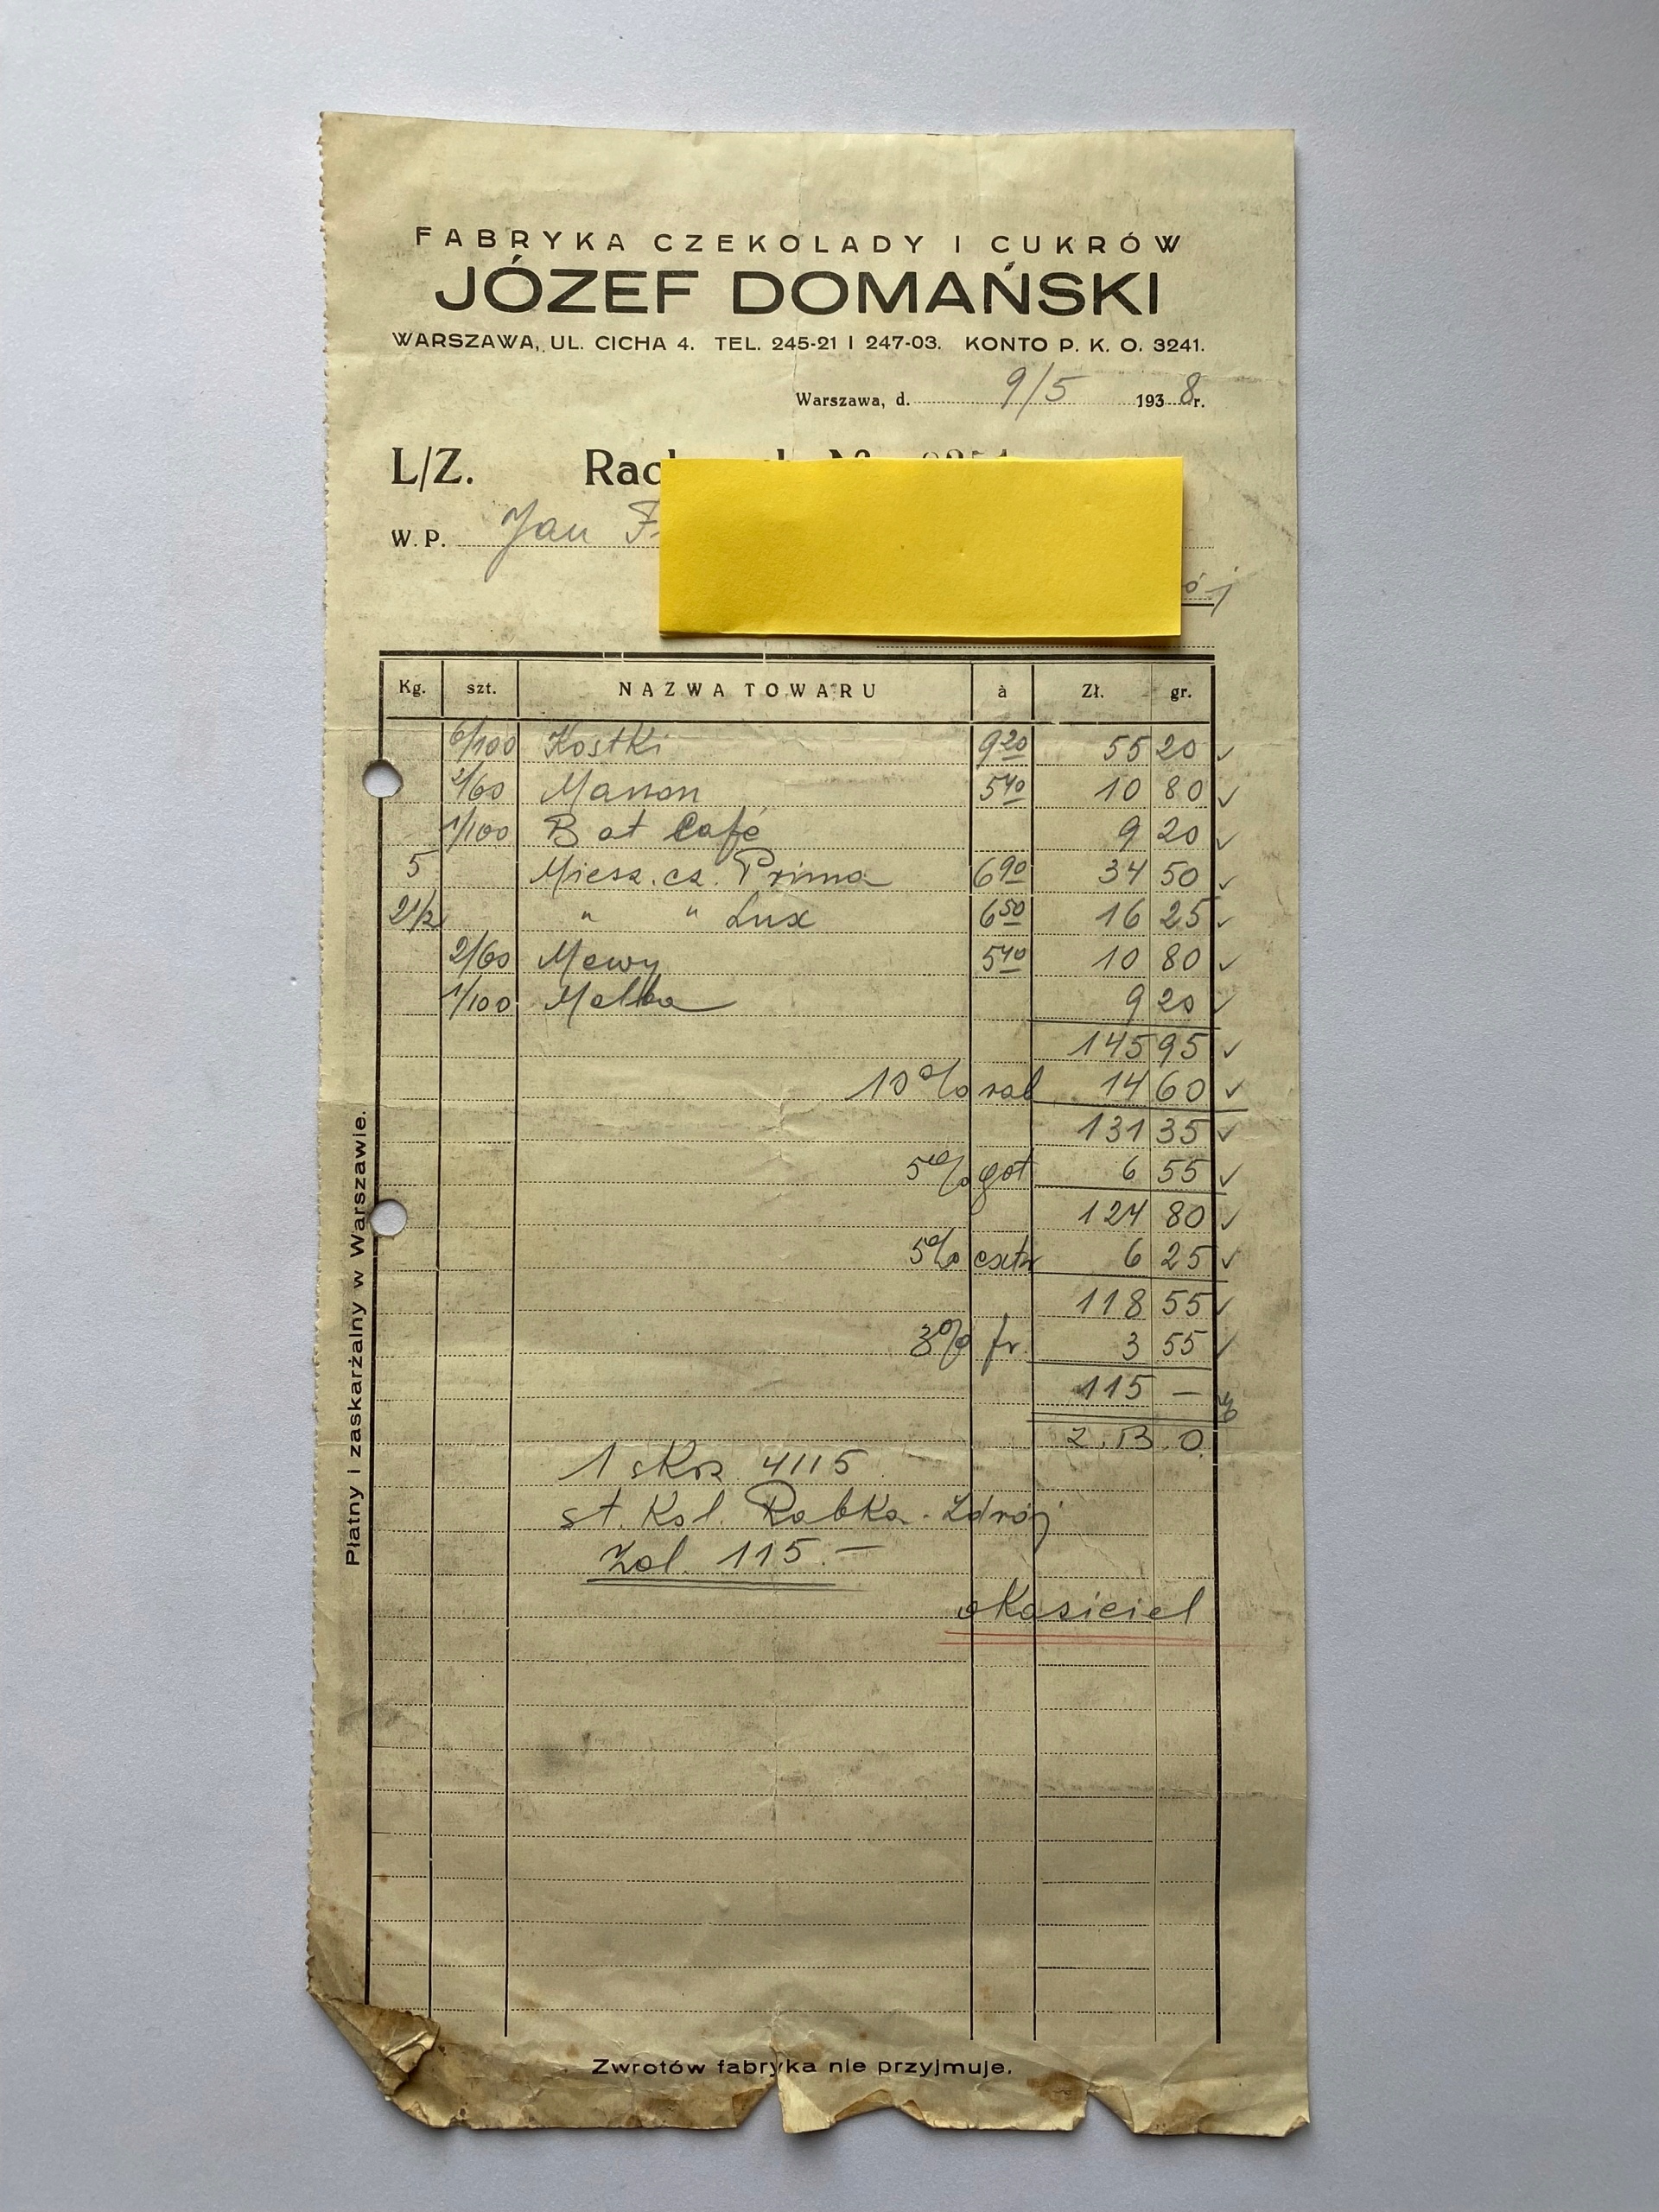 FABRYKA CZEKOLADY I CUKRÓW
JÓZEF DOMAŃSKI
WARSZAWA, UL. CICHA 4. TEL. 245-21 I 247-03. KONTO P. K. O. 3241.
Warszawa, d. 9/5 1938 r.
L/Z.
W. P. Jan
Kg. szt. NAZWA TOWARU à Zł. gr.
6/100 Kostki 9 20 55 20
2/60 Manon 5 40 10 80
1/100 Bat Café 9 20
5 Miesz. cz. Prima 6 90 34 50
2 1/2 " " Lux 6 50 16 25
2/60 Mewy 5 40 10 80
1/100 Malba 9 20
145 95
10% rab 14 60
131 35
5% got 6 55
124 80
5% extr 6 25
118 55
3% fr. 3 55
115 —
Z. B. O.
1 skrz. 4115
st. Kol. Rabka-Zdrój
Zal. 115.—
okaziciel
Płatny i zaskarżalny w Warszawie.
Zwrotów fabryka nie przyjmuje.